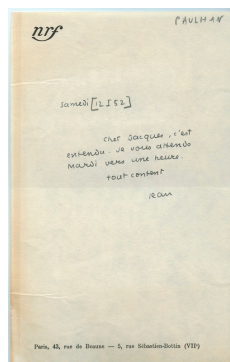 nrf
PAULHAN
samedi [12 I 52]
cher Jacques, c'est
entendu. Je vous attends
mardi vers une heure.
tout content
Jean
Paris, 43, rue de Beaune — 5, rue Sébastien-Bottin (VIIᵉ)